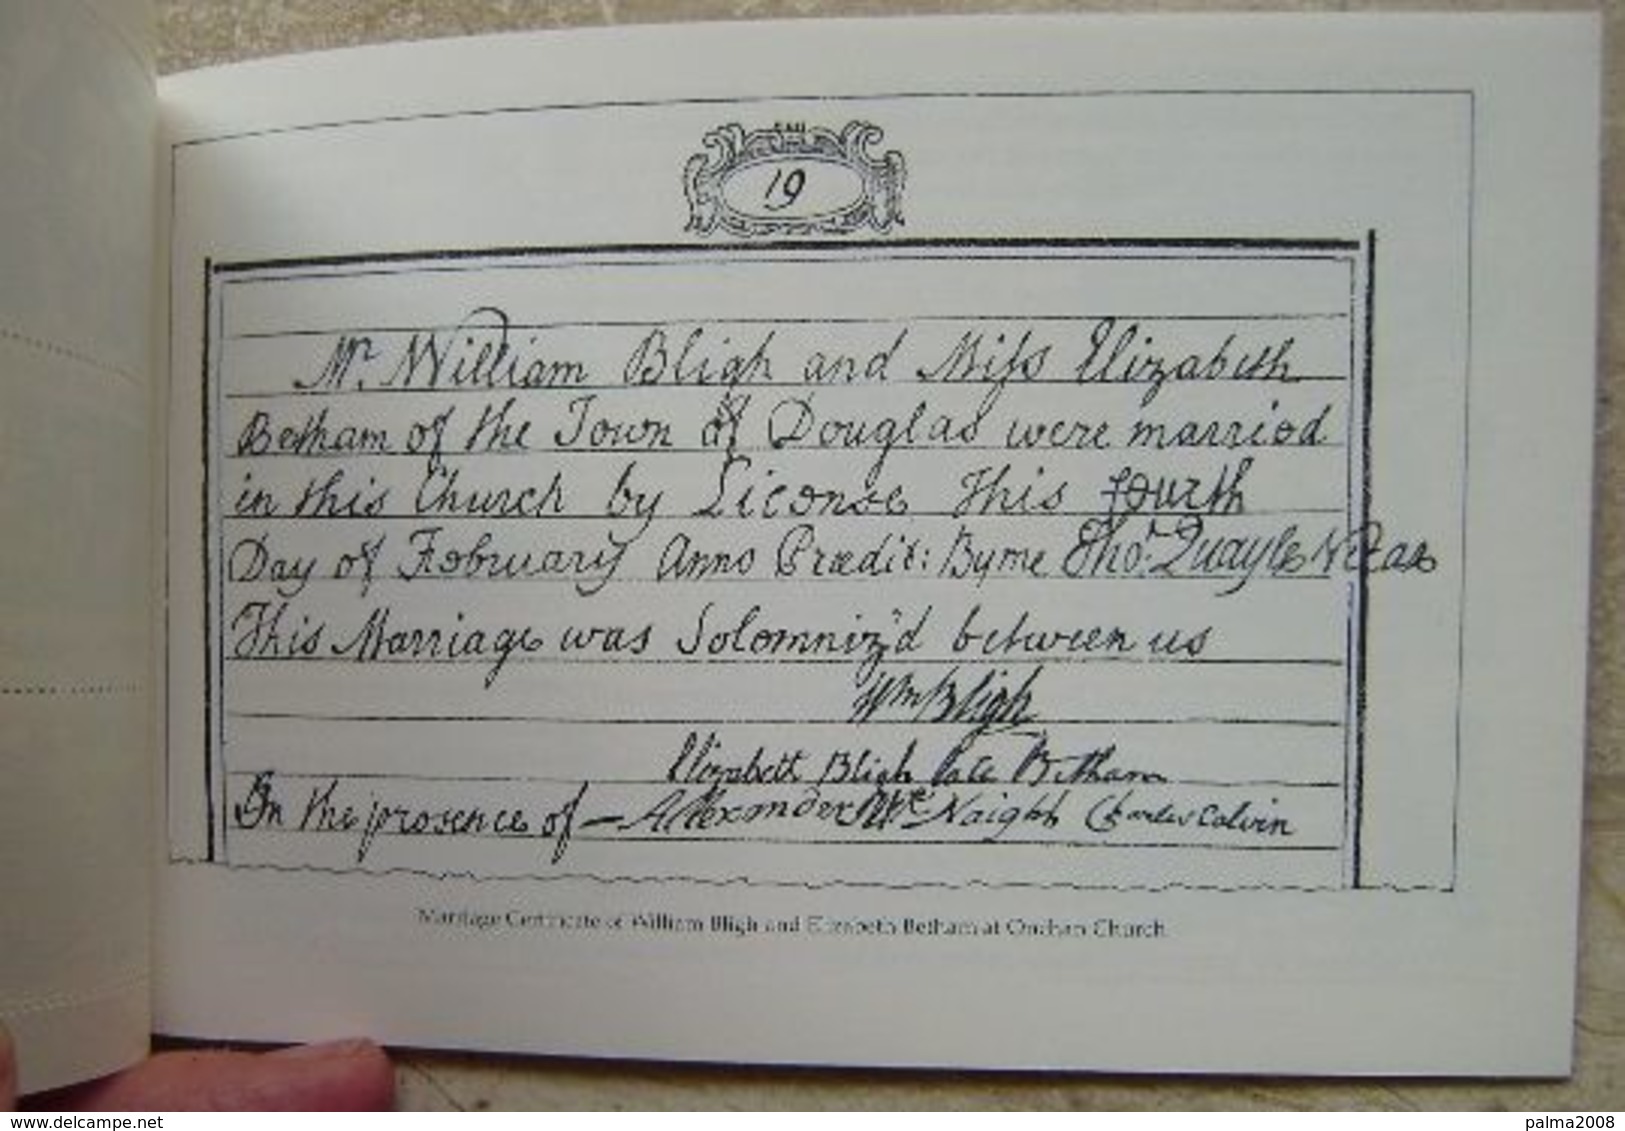 19
Mr. William Bligh and Miſs Elizabeth
Betham of the Town of Douglas were married
in this Church by License This fourth
Day of February Anno Prædict: By me Thos. Quayle Vicar
This Marriage was Solemniz'd between us
Wm Bligh
Elizabeth Bligh late Betham
In the presence of — Alexander Mc Naight Charles Colvin
Marriage Certificate of William Bligh and Elizabeth Betham at Onchan Church
www.delcampe.net
palma2008